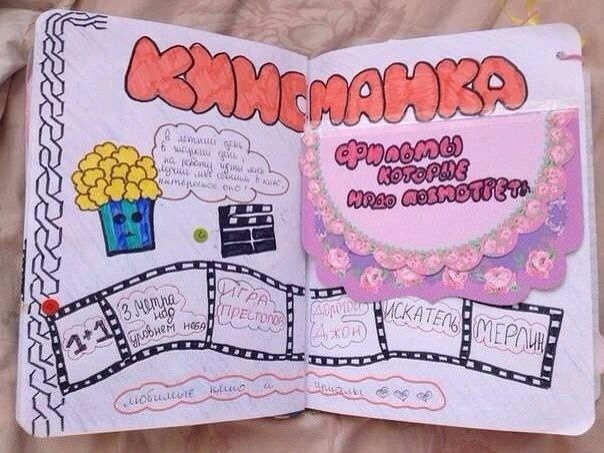 КИНОМАНКА
В летний день
в скучный день,
на работу идти лень
лучше мы сходим в кино
интересное оно!
ФИЛЬМЫ
КОТОРЫЕ
НАДО ПОСМОТРЕТЬ
1+1
3 метра
над
уровнем неба
ИГРА
ПРЕСТОЛОВ
Дорогой
Джон
ИСКАТЕЛЬ
МЕРЛИН
любимые кино и сериалы